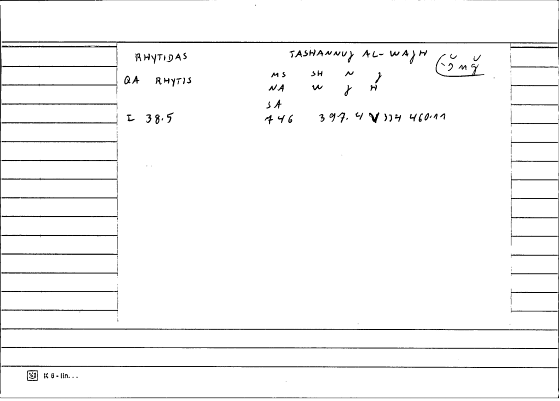 RHYTIDAS TASHANNUJ AL-WAJH
QA RHYTIS MS SH N J
NA W J H
SA
I 38.5 446 397.4 460.11
K 6 - lin...